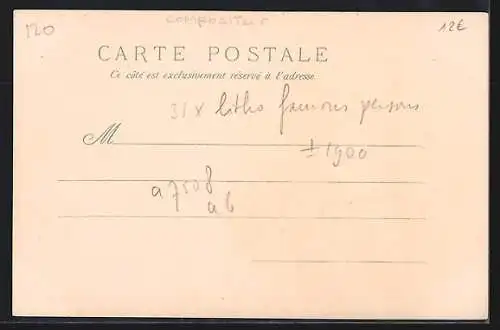 120 COMPOSITEUR 12€
CARTE POSTALE
Ce côté est exclusivement réservé à l'adresse.
31 x litho famous persons
M
± 1900
a7508
ab